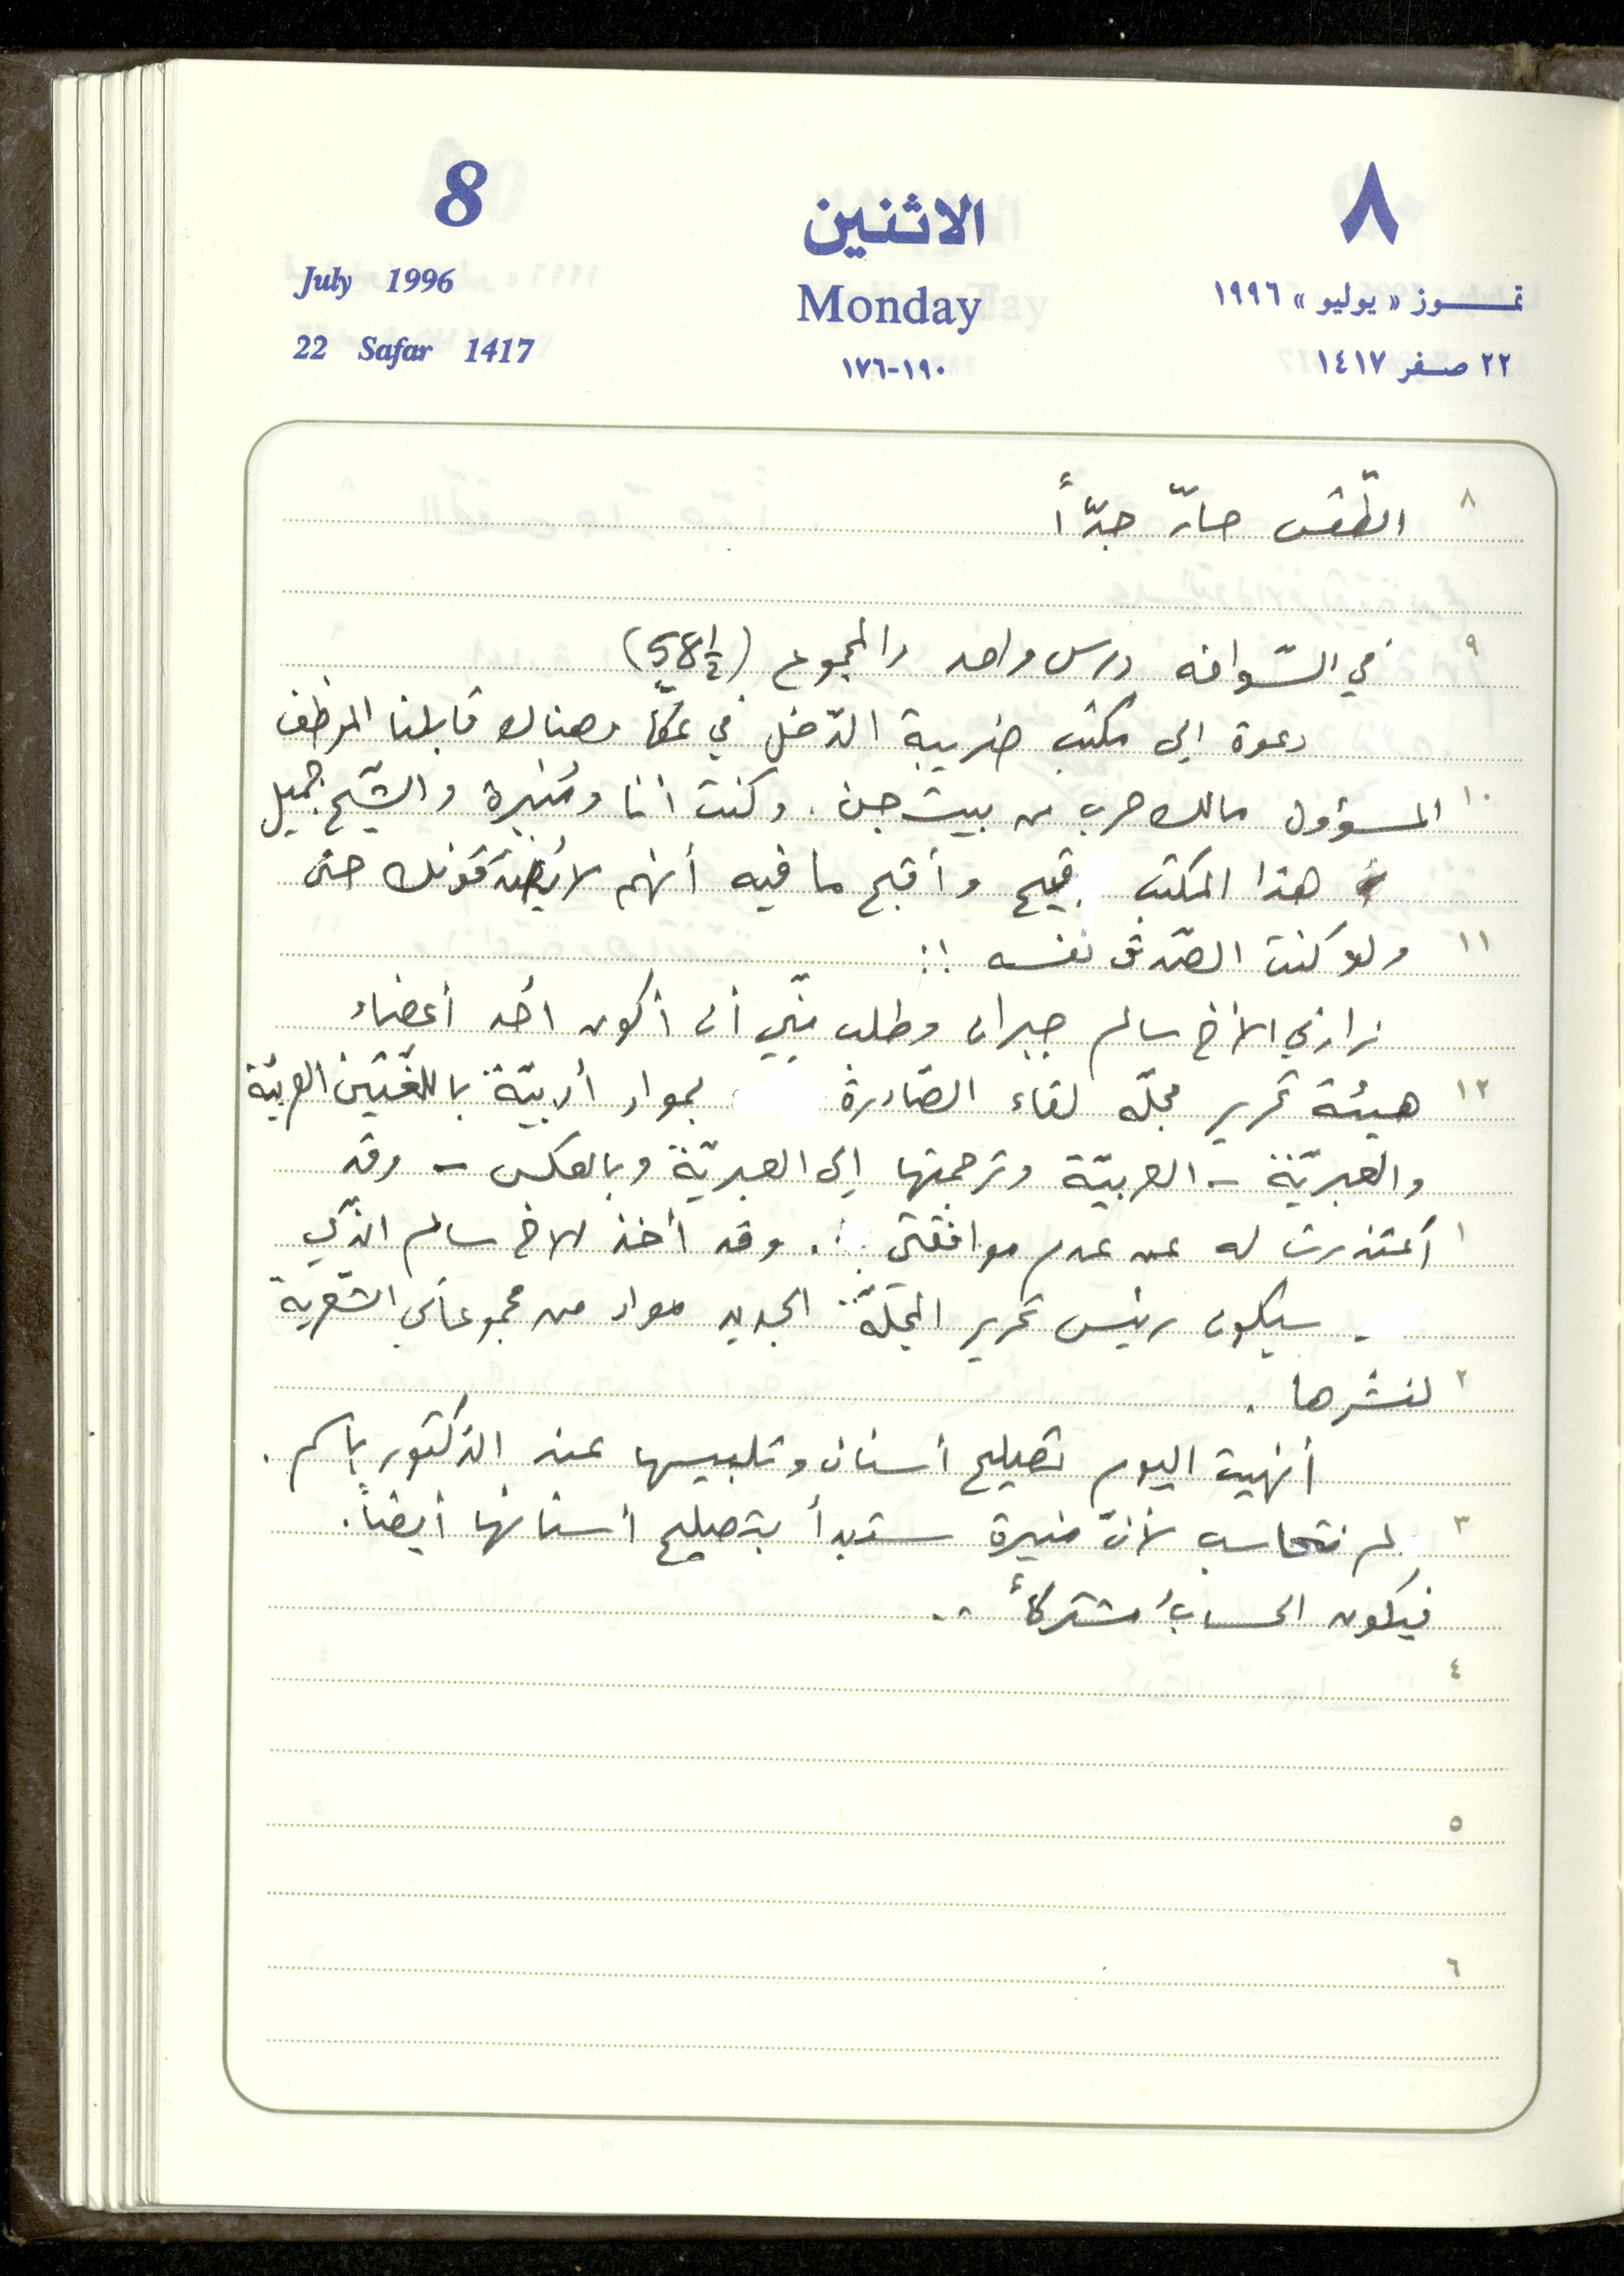 8
الاثنين
٨
July 1996
Monday
تمـــوز « يوليو » ١٩٩٦
22 Safar 1417
١٩٠-١٧٦
٢٢ صفر ١٤١٧
٨ الطّقس حارّ جدّاً
٩ في السّواقه درس واحد والمجموع (58½)
دعوة الى مكتب ضريبة الدّخل في عكّا وهناك قابلنا الموظف
١٠ المسؤول مالك حرب من بيت جن. وكنت أنا ومُنيرة والشّيخ جميل
هذا المكتب قبيح وأقبح ما فيه أنهم لا يُصدّقونك حتى
١١ ولو كنت الصّدق نفسه !!
زارني الأخ سالم جبران وطلب منّي أن أكون أحد أعضاء
١٢ هيئة تحرير مجلّة لقاء الصّادرة بمواد أدبيّة باللغتين العربيّة
والعبريّة - العربيّة وترجمتها إلى العبريّة وبالعكس - وقد
١ أعتذرت له عن عدم موافقتي . وقد أخذ الاخ سالم الذّي
سيكون رئيس تحرير المجلّة الجديد مواد من مجموعاتي الشّعرية
٢ لنشرها .
أنهيت اليوم تصليح أسنان وتلبيسها عند الدّكتور باسم .
٣ لم نتحاسب لأنّ منيرة ستبدأ بتصليح أسنانها أيضاً.
فيكون الحسابُ مشتركاً ..
٤
٥
٦